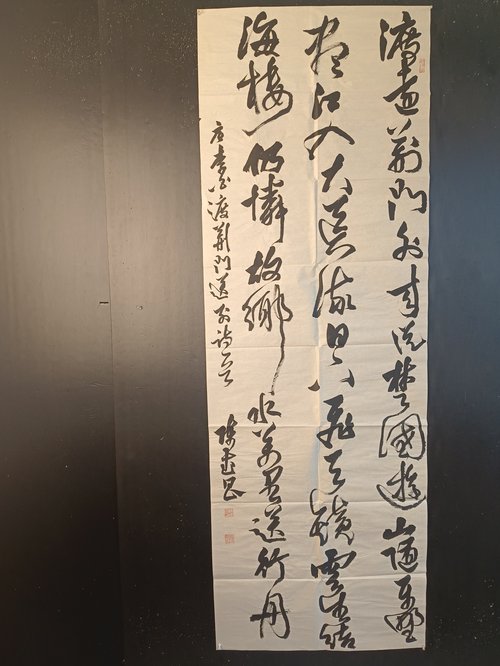 渡遠荆門外来從楚國遊山隨平野
盡江入大荒流月下飛天鏡雲生結
海樓仍憐故鄉水萬里送行舟
唐李白渡荆門送別詩一首